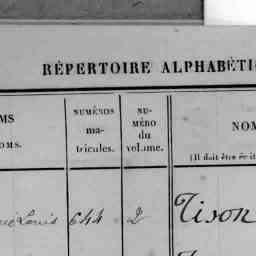 RÉPERTOIRE ALPHABÉTI
MS
OMS.
NUMÉROS
ma-
tricules.
NU-
MÉRO
du
volume.
NOM
(Il doit être écrit
Louis 644 2 Tison